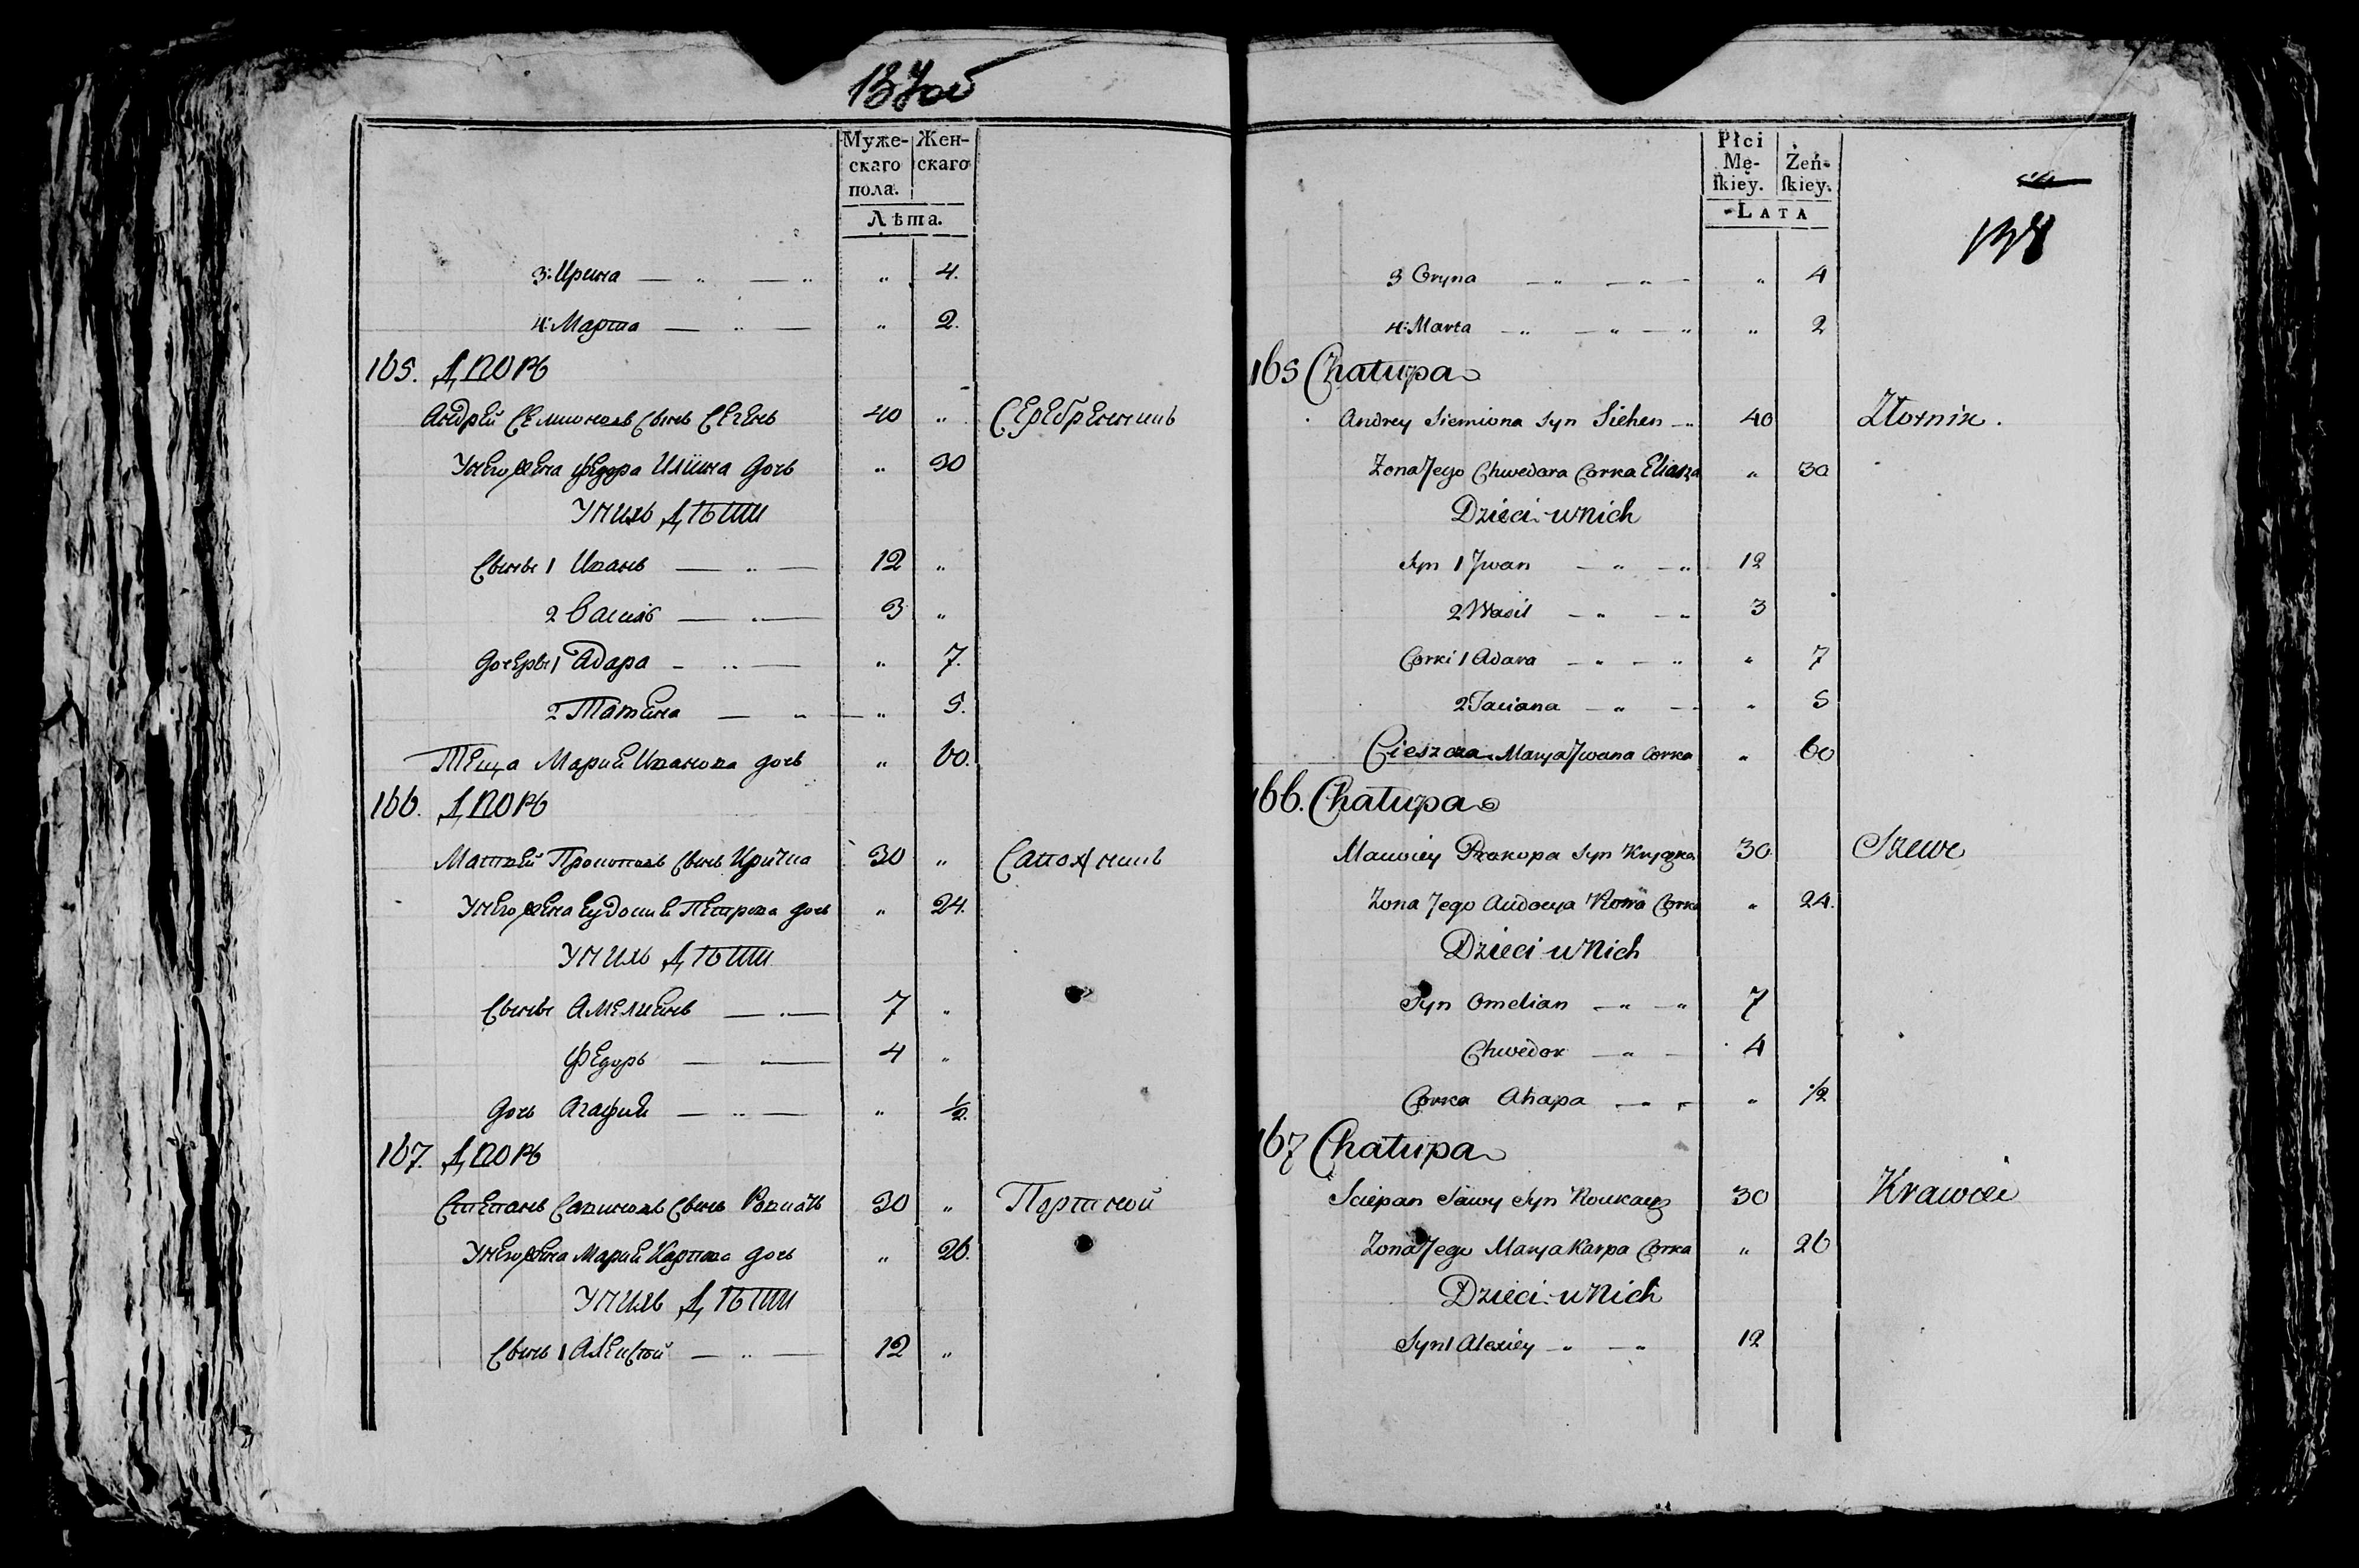 137об
Муже- Жен-
скаго скаго
пола.
Лѣта.
3: Ирина — „ — „ „ 4.
4: Марта — „ — „ 2.
165. Дворъ
Андрей Семионовъ сынъ Сегень 40 „ Серебренникъ
У него жена Федора Илiина дочь „ 30
У нихъ дѣти
Сыны 1 Иванъ — „ — 12 „
2 Василь — „ — 3 „
Дочеры 1 Адара — „ — „ 7.
2 Татiяна — „ — „ 5.
Теща Мария Иванова дочь „ 60.
166. Дворъ
Матвей Прокоповъ сынъ 30 „ Сапожникъ
У него жена Евдокия Петрова дочь „ 24.
У нихъ дѣти
Сыны Амелиянъ — „ — 7 „
Федоръ — „ — 4 „
Дочь Агафия — „ — „ ½.
167. Дворъ
Степанъ Савиновъ сынъ 30 „ Портной
У него жена Мария Карпова дочь „ 26.
У нихъ дѣти
Сынъ 1 Алексѣй — „ — 12 „
Płci
Mę- Żeń-
ſkiey. ſkiey.
LATA
138
3 Oryna — „ — „ — „ 4
4: Marta — „ — „ — „ „ 2
165 Chałupa
Andrey Siemiona Syn Siehen — „ 40 Złotnik.
Zona Jego Chwedora Corka Eliasza „ 30
Dzieci u Nich
Syn 1 Jwan — „ — „ 12
2 Wasil — „ — „ 3
Corki 1 Adara — „ — „ „ 7
2 Taciana — „ — „ 5
Cieszcza Marya Jwana Corka „ 60
166. Chałupa
Maciey Prakopa Syn 30 Szewc
Zona Jego Audocya Corka „ 24.
Dzieci u Nich
Syn Omelian — „ — „ 7
Chwedor — „ — 4
Corka Ahapa — „ — „ ½
167 Chałupa
Sciepan Sawy Syn 30 Krawiec
Zona Jego Marya Karpa Corka „ 26
Dzieci u Nich
Syn 1 Alexiey — „ — „ 12